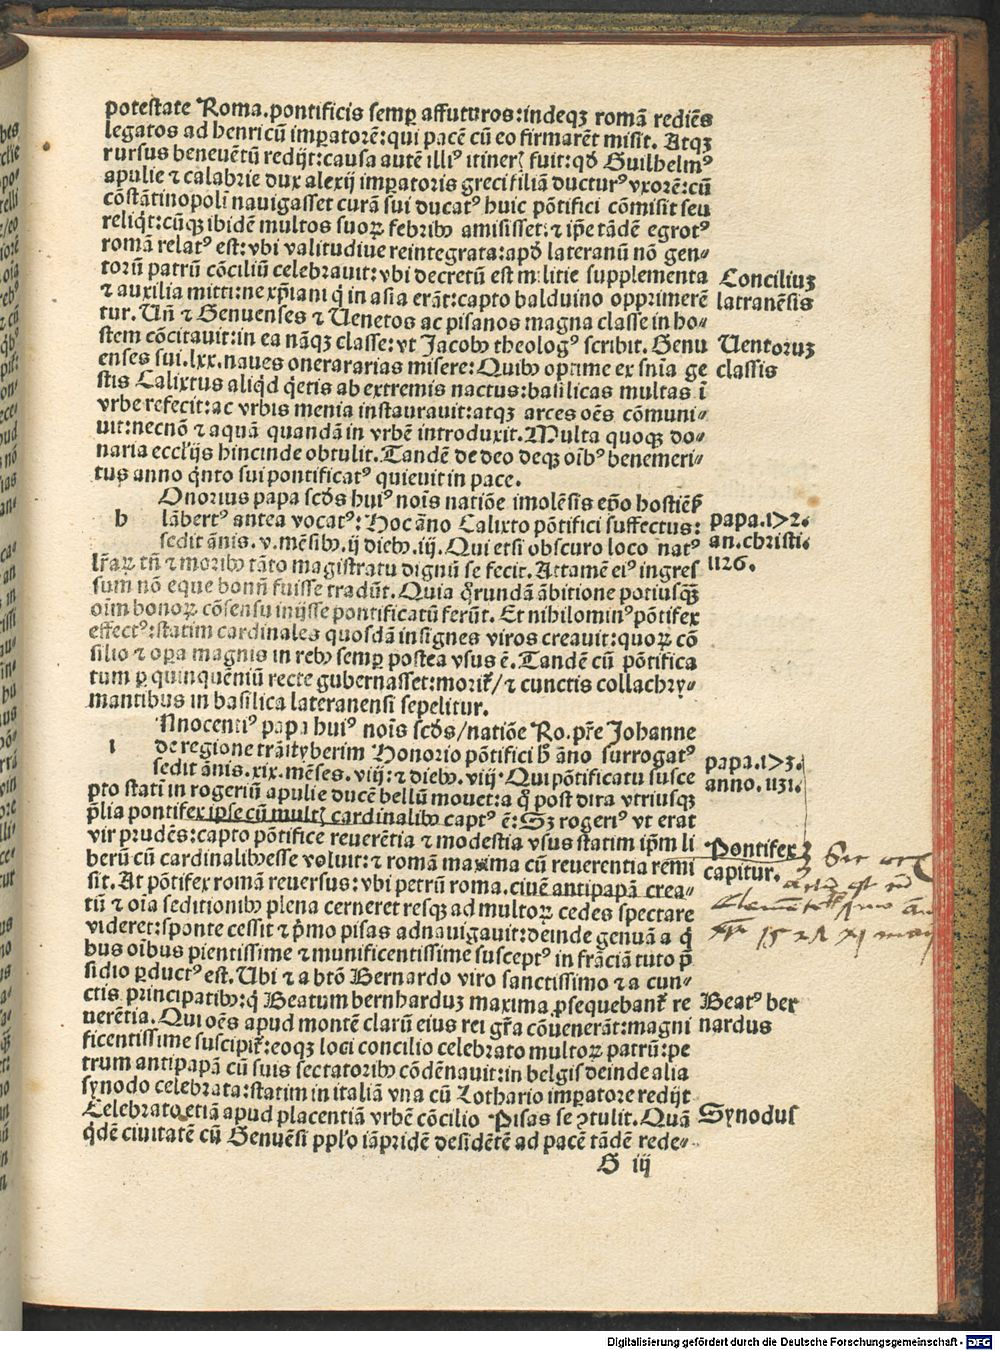 potestate Roma.pontificis semꝑ affuturos:indeqꝫ romã rediẽs
legatos ad henricũ imꝑatorẽ:qui pacẽ cũ eo firmarẽt misit. Atqꝫ
rursus beneuẽtũ redijt:causa autẽ illiꝰ itinerꝭ fuit:qđ Guilhelmꝰ
apulie ⁊ calabrie dux alexij imꝑatoris greci filiã ducturꝰ vxorẽ:cũ
cõstãtinopolĩ nauigasset curã sui ducatꝰ huic põtifici cõmisit seu
reliq̇t:cũqꝫ ibidẽ multos suoꝝ febribꝰ amisisset:⁊ ip̃e tãdẽ egrotꝰ
romã relatꝰ est:vbi valitudiue reintegrata:apđ lateranũ nõ gen⸗
torũ patrũ cõciliũ celebrauit:vbi decretũ est militie supplementa
⁊ auxilia mitti:ne xp̃iani q̇ in asia erãt:capto balduino opprimerẽ
tur. Uñ ⁊ Genuenses ⁊ Uenetos ac pisanos magna classe in ho⸗
stem cõcitauit:in ea nãqꝫ classe:vt Jacobꝰ theologꝰ scribit. Genu
enses sui.lxx.naues onerararias misere:Quibꝰ optime ex snĩa ge
stis Calixtus aliq̇d q̇etis ab extremis nactus:basilicas multas ĩ
vrbe refecit:ac vrbis menia instaurauit:atqꝫ arces oẽs cõmuni⸗
uit:necnõ ⁊ aquã quandã in vrbẽ introduxit.Multa quoqꝫ do⸗
naria eccl'ijs hincinde obtulit. Tandẽ de deo deqꝫ oĩbꝰ benemeri⸗
tus anno q̇nto sui pontificatꝰ quieuit in pace.
Onorius papa scđs huiꝰ noĩs natiõe imolẽsis ep̃o hostiẽsꝭ
h lãbertꝰ antea vocatꝰ:Hoc ãno Calixto põtifici suffectus:
sedit ãnis.v.mẽsibꝰ.ij diebꝰ.iij.Qui etsi obscuro loco natꝰ
lr̃aꝝ tñ ⁊ moribꝰ tãto magistratu dignũ se fecit.Attamẽ eiꝰ ingres
sum nõ eque bonũ fuisse tradũt.Quia q̃rundã ãbitione potiusq̃ꝫ
oĩm bonoꝝ cõsensu inijsse pontificatũ ferũt. Et nihilominꝰ põtifex
effectꝰ:statim cardinales quosdã insignes viros creauit:quoꝝ cõ
silio ⁊ oꝑa magnis in rebꝰ semꝑ postea vsus ẽ.Tandẽ cũ põtifica
tum ꝑ quinquẽniũ recte gubernasset:moriť/⁊ cunctis collachry⸗
mantibus in basilica lateranensi sepelitur.
Nnocentiꝰ papa huiꝰ noĩs scđs/natiõe Ro.pr̃e Johanne
i de regione trãstyberim Honorio põtifici h̃ ãno surrogatꝰ
sedit ãnis.xix.mẽses.viij:⁊ diebꝰ.viij.Qui põtificatu susce
pto statĩ in rogeriũ apulie ducẽ bellũ mouet:a q̊ post dira vtriusqꝫ
p̃lia pontifex ipse cũ multꝭ cardinalibꝰ captꝰ ẽ:Sꝫ rogeriꝰ vt erat
vir prudẽs:capto põtifice reuerẽtia ⁊ modestia vsus statim ip̃m li
berũ cũ cardinalibꝰesse voluit:⁊ romã maxima cũ reuerentia remi
sit. At põtifex romã reuersus:vbi petrũ roma.ciuẽ antipapã crea⸗
tũ ⁊ oĩa seditionibꝰ plena cerneret resqꝫ ad multoꝝ cedes spectare
videret:sponte cessit ⁊ p̃mo pisas adnauigauit:deinde genuã a q̇
bus oĩbus pientissime ⁊ munificentissime susceptꝰ in frãciã tuto p̃
sidio ꝑductꝰ est. Ubi ⁊ a btõ Bernardo viro sanctissimo ⁊ a cun⸗
ctis principatibꝰ:q̇ Beatum bernharduꝫ maxima ꝓsequebanť re
uerẽtia. Qui oẽs apud montẽ clarũ eius rei gr̃a cõuenerãt:magni
ficentissime suscipiť:eoqꝫ loci concilio celebrato multoꝝ patrũ:pe
trum antipapã cũ suis sectatoribꝰ cõdẽnauit:in belgis deinde alia
synodo celebrata:statim in italiã vna cũ Lothario imꝑatore redijt
Celebrato etiã apud placentiã vrbẽ cõcilio Pisas se ↄtulit. Quã
q̇dẽ ciuitatẽ cũ Genuẽsi ppl'o iãpridẽ desidẽtẽ ad pacẽ tãdẽ rede⸗
G iij
Conciliuꝫ
latranẽsis
Uentoruꝫ
classis
papa.172.
an.christi.
1126.
papa.173.
anno.1131.
Pontifex
capitur.
Beatꝰ ber
nardus
Synodus
Digitalisierung gefördert durch die Deutsche Forschungsgemeinschaft - DFG